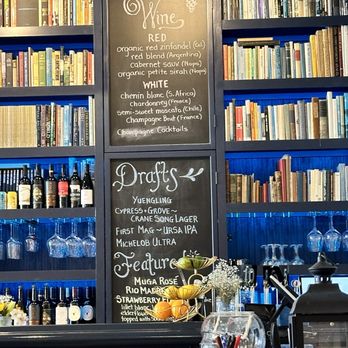 Wine
RED
organic red zinfandel (Cal)
red blend (Argentina)
cabernet sauv (Napa)
organic petite sirah (Napa)
WHITE
chenin blanc (S. Africa)
Chardonnay (France)
semi-sweet moscato (Chile)
Champagne Brut (France)
Champagne Cocktails
Drafts
Yuengling
Cypress & Grove ~
Crane Song Lager
First Mag ~ Ursa IPA
Michelob Ultra
Feature
Muga Rosé
Rio Madre
Strawberry
elderflower
topped with